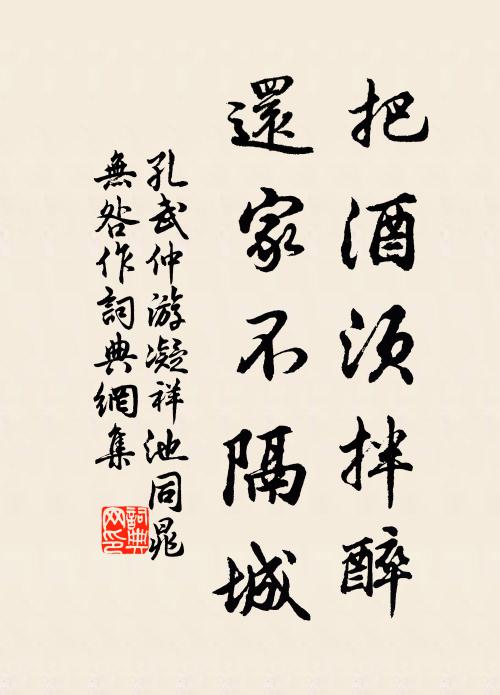 把酒須拌醉
還家不隔城
孔武仲游凝祥池同晁
無咎作詞典網集
詞典網印